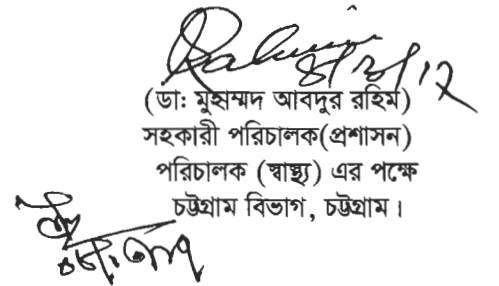 (ডা: মুহাম্মদ আবদুর রহিম)
সহকারী পরিচালক(প্রশাসন)
পরিচালক (স্বাস্থ্য) এর পক্ষে
চট্টগ্রাম বিভাগ, চট্টগ্রাম।